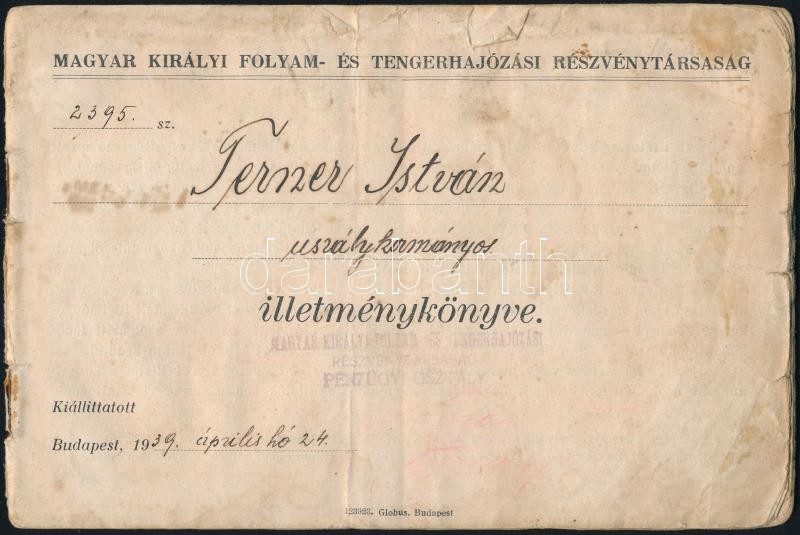 MAGYAR KIRÁLYI FOLYAM- ÉS TENGERHAJÓZÁSI RÉSZVÉNYTÁRSASÁG
2395. sz.
Terner István
uszálykormányos
darabanth
illetménykönyve.
MAGYAR KIRÁLYI FOLYAM ÉS TENGERHAJÓZÁSI
RÉSZVÉNYTÁRSASÁG
PÉNZÜGYI OSZTÁLY
Kiállittatott
Budapest, 1939. április hó 24.
123923. Globus, Budapest